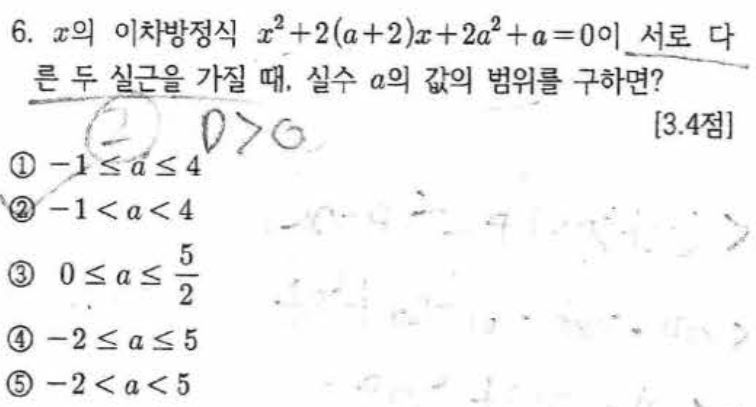 6. x의 이차방정식 x²+2(a+2)x+2a²+a=0이 서로 다
른 두 실근을 가질 때, 실수 a의 값의 범위를 구하면?
[3.4점]
2 D>0
① -1≤a≤4
② -1<a<4
③ 0≤a≤5/2
④ -2≤a≤5
⑤ -2<a<5